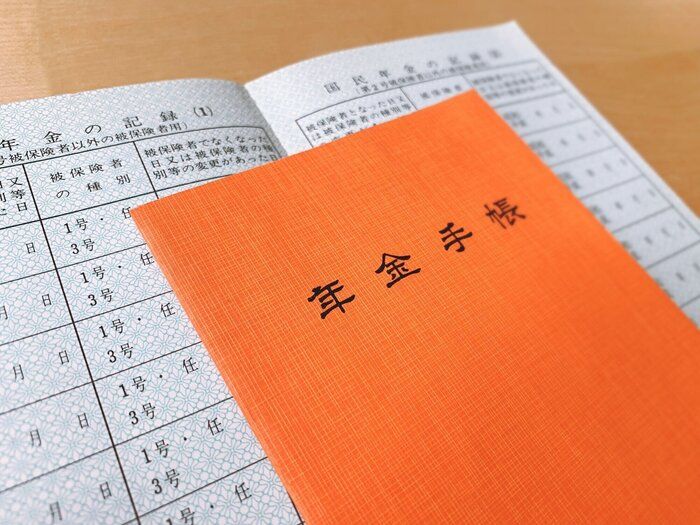 年金の記録(1)
号被保険者以外の被保険者用)
日又
別等
た日
被保険者
の種別
被保険者でなくなった
日又は被保険者の種
別等の変更があった日
日
1号・任
3号
1号・任
3号
月 日
1号・任
3号
月 日
1号・任
3号
月 日
1号・任
3号
月 日
1号・任
3号
国民年金の記録
(第2号被保険者以外の被保険者用)
被保険者となった日又
は被保険者の種別等
被保険者
年金手帳